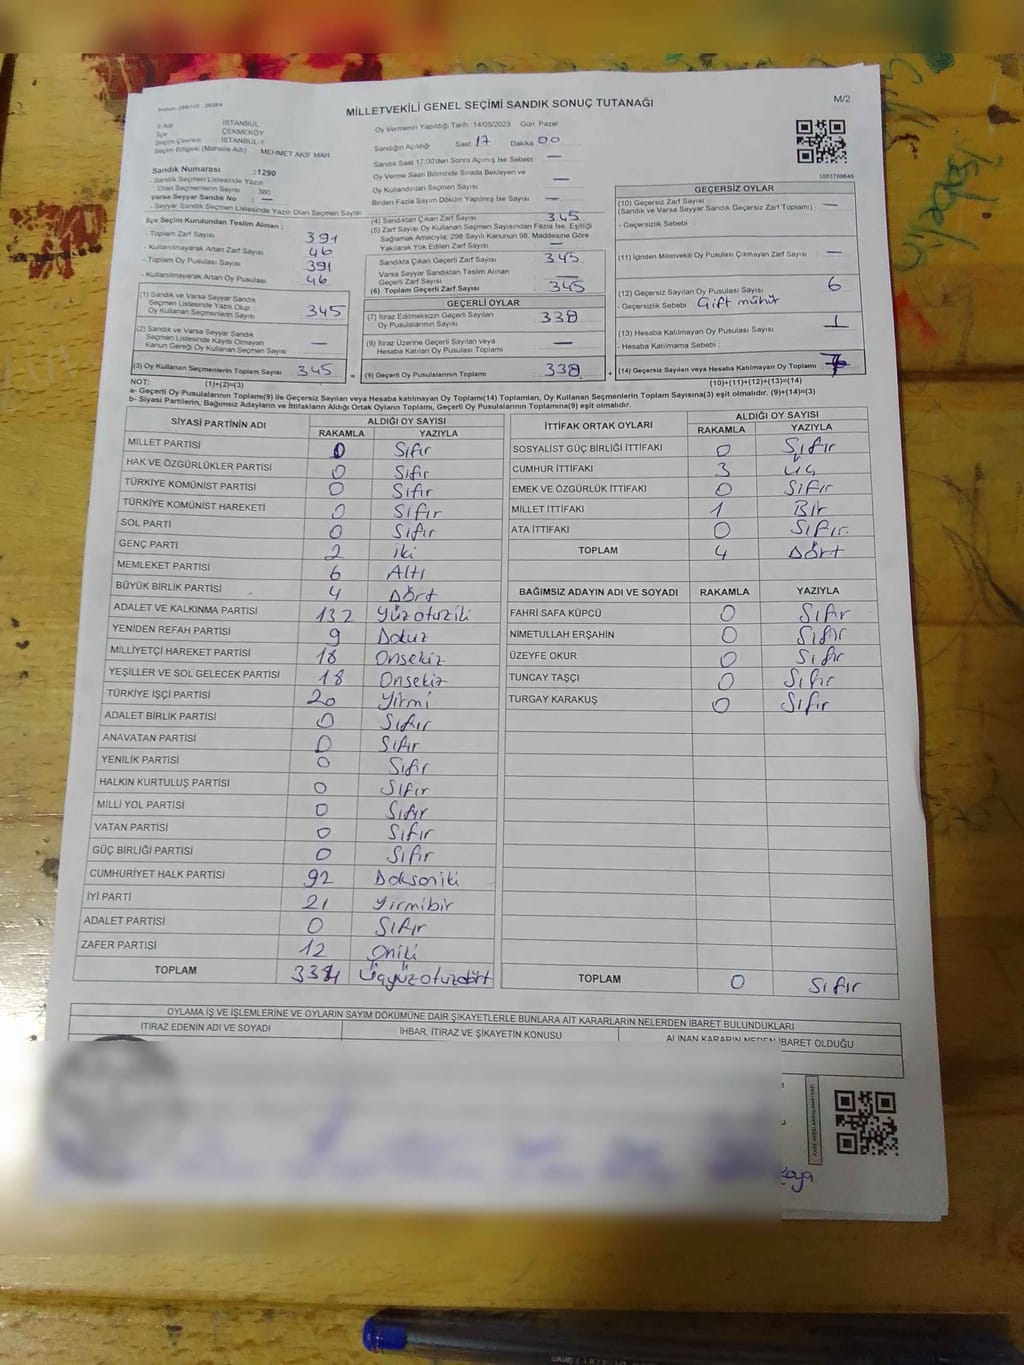 MİLLETVEKİLİ GENEL SEÇİMİ SANDIK SONUÇ TUTANAĞI
M/2
İl Adı : İSTANBUL
İlçe : ÇEKMEKÖY
Seçim Çevresi : İSTANBUL-1
Seçim Bölgesi (Mahalle Adı) : MEHMET AKİF MAH.
Oy Vermenin Yapıldığı Tarih :14/05/2023 Gün: Pazar
Sandığın Açıldığı Saat 17 Dakika 00
Sandık Saat 17:00'den Sonra Açılmış İse Sebebi : —
Oy Verme Saati Bitiminde Sırada Bekleyen ve
Oy Kullandırılan Seçmen Sayısı —
Birden Fazla Sayım Döküm Yapılmış İse Sayısı —
Sandık Numarası :1290
- Sandık Seçmen Listesinde Yazılı
Olan Seçmenlerin Sayısı : 380
Varsa Seyyar Sandık No : —
- Seyyar Sandık Seçmen Listesinde Yazılı Olan Seçmen Sayısı
İlçe Seçim Kurulundan Teslim Alınan ;
- Toplam Zarf Sayısı 391
- Kullanılmayarak Artan Zarf Sayısı 46
- Toplam Oy Pusulası Sayısı 391
- Kullanılmayarak Artan Oy Pusulası 46
(1) Sandık ve Varsa Seyyar Sandık
Seçmen Listesinde Yazılı Olup
Oy Kullanan Seçmenlerin Sayısı 345
(2) Sandık ve Varsa Seyyar Sandık
Seçmen Listesinde Kaydı Olmayan
Kanun Gereği Oy Kullanan Seçmen Sayısı —
(3) Oy Kullanan Seçmenlerin Toplam Sayısı 345
(4) Sandıktan Çıkan Zarf Sayısı 345
(5) Zarf Sayısı Oy Kullanan Seçmen Sayısından Fazla İse, Eşitliği
Sağlamak Amacıyla, 298 Sayılı Kanunun 98. Maddesine Göre
Yakılarak Yok Edilen Zarf Sayısı —
Sandıkta Çıkan Geçerli Zarf Sayısı 345
Varsa Seyyar Sandıktan Teslim Alınan
Geçerli Zarf Sayısı —
(6) Toplam Geçerli Zarf Sayısı 345
GEÇERLİ OYLAR
(7) İtiraz Edilmeksizin Geçerli Sayılan
Oy Pusulalarının Sayısı 338
(8) İtiraz Üzerine Geçerli Sayılan veya
Hesaba Katılan Oy Pusulası Toplamı —
= (9) Geçerli Oy Pusulalarının Toplamı 338
GEÇERSİZ OYLAR
(10) Geçersiz Zarf Sayısı —
(Sandık ve Varsa Seyyar Sandık Geçersiz Zarf Toplamı)
- Geçersizlik Sebebi
(11) İçinden Milletvekili Oy Pusulası Çıkmayan Zarf Sayısı —
(12) Geçersiz Sayılan Oy Pusulası Sayısı 6
- Geçersizlik Sebebi Çift mühür
(13) Hesaba Katılmayan Oy Pusulası Sayısı 1
- Hesaba Katılmama Sebebi :
+ (14) Geçersiz Sayılan veya Hesaba Katılmayan Oy Toplamı 7
NOT: (1)+(2)=(3) (10)+(11)+(12)+(13)=(14)
a- Geçerli Oy Pusulalarının Toplamı(9) ile Geçersiz Sayılan veya Hesaba katılmayan Oy Toplamı(14) Toplamları, Oy Kullanan Seçmenlerin Toplam Sayısına(3) eşit olmalıdır. (9)+(14)=(3)
b- Siyasi Partilerin, Bağımsız Adayların ve İttifakların Aldığı Ortak Oyların Toplamı, Geçerli Oy Pusulalarının Toplamına(9) eşit olmalıdır.
SİYASİ PARTİNİN ADI ALDIĞI OY SAYISI
RAKAMLA YAZIYLA
MİLLET PARTİSİ 0 Sıfır
HAK VE ÖZGÜRLÜKLER PARTİSİ 0 Sıfır
TÜRKİYE KOMÜNİST PARTİSİ 0 Sıfır
TÜRKİYE KOMÜNİST HAREKETİ 0 Sıfır
SOL PARTİ 0 Sıfır
GENÇ PARTİ 2 iki
MEMLEKET PARTİSİ 6 Altı
BÜYÜK BİRLİK PARTİSİ 4 Dört
ADALET VE KALKINMA PARTİSİ 132 Yüzotuziki
YENİDEN REFAH PARTİSİ 9 Dokuz
MİLLİYETÇİ HAREKET PARTİSİ 18 Onsekiz
YEŞİLLER VE SOL GELECEK PARTİSİ 18 Onsekiz
TÜRKİYE İŞÇİ PARTİSİ 20 Yirmi
ADALET BİRLİK PARTİSİ 0 Sıfır
ANAVATAN PARTİSİ 0 Sıfır
YENİLİK PARTİSİ 0 Sıfır
HALKIN KURTULUŞ PARTİSİ 0 Sıfır
MİLLİ YOL PARTİSİ 0 Sıfır
VATAN PARTİSİ 0 Sıfır
GÜÇ BİRLİĞİ PARTİSİ 0 Sıfır
CUMHURİYET HALK PARTİSİ 92 Doksaniki
İYİ PARTİ 21 Yirmibir
ADALET PARTİSİ 0 Sıfır
ZAFER PARTİSİ 12 Oniki
TOPLAM 334 Üçyüzotuzdört
İTTİFAK ORTAK OYLARI ALDIĞI OY SAYISI
RAKAMLA YAZIYLA
SOSYALİST GÜÇ BİRLİĞİ İTTİFAKI 0 Sıfır
CUMHUR İTTİFAKI 3 Üç
EMEK VE ÖZGÜRLÜK İTTİFAKI 0 Sıfır
MİLLET İTTİFAKI 1 Bir
ATA İTTİFAKI 0 Sıfır
TOPLAM 4 Dört
BAĞIMSIZ ADAYIN ADI VE SOYADI RAKAMLA YAZIYLA
FAHRİ SAFA KÜPCÜ 0 Sıfır
NİMETULLAH ERŞAHİN 0 Sıfır
ÜZEYFE OKUR 0 Sıfır
TUNCAY TAŞÇI 0 Sıfır
TURGAY KARAKUŞ 0 Sıfır
TOPLAM 0 Sıfır
OYLAMA İŞ VE İŞLEMLERİNE VE OYLARIN SAYIM DÖKÜMÜNE DAİR ŞİKAYETLERLE BUNLARA AİT KARARLARIN NELERDEN İBARET BULUNDUKLARI
İTİRAZ EDENİN ADI VE SOYADI
İHBAR, İTİRAZ VE ŞİKAYETİN KONUSU
ALINAN KARARIN NEDEN İBARET OLDUĞU